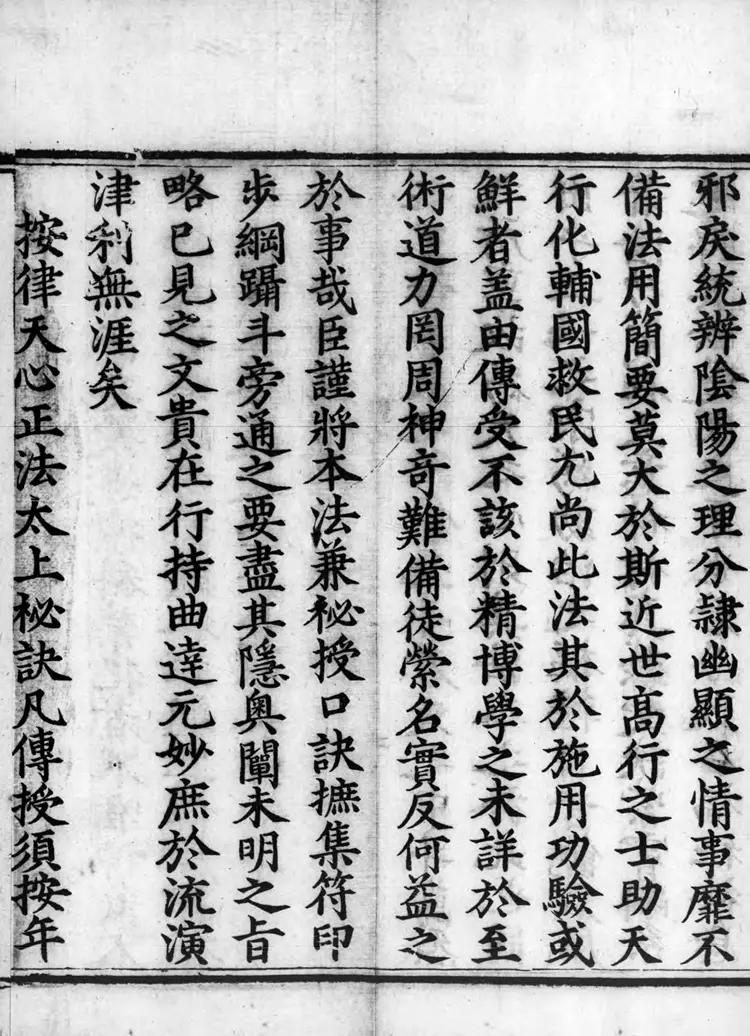 邪戾統辨陰陽之理分隷幽顯之情事靡不
備法用簡要莫大於斯近世高行之士助天
行化輔國救民尤尚此法其於施用功驗或
鮮者盖由傳受不該於精博學之未詳於至
術道力罔周神奇難備徒縈名實反何益之
於事哉臣謹將本法兼祕授口訣摭集符印
步綱躡斗旁通之要盡其隱奧闡未明之旨
略已見之文貴在行持曲達元妙庶於流演
津利無涯矣
按律天心正法太上祕訣凡傳授須按年